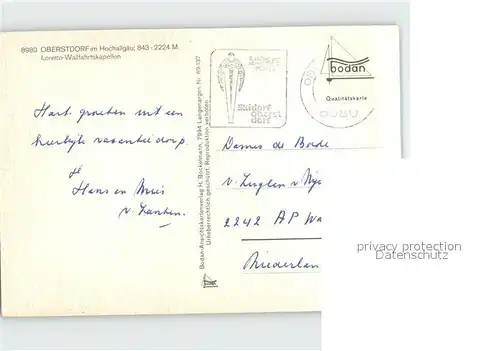 8980 OBERSTDORF im Hochallgäu; 843 - 2224 M.
Loretto-Wallfahrtskapellen
bodan
Qualitätskarte
Skidorf
Oberst
dorf
Hart. groeten uit een
heerlijk vacantie dorp.
Hans en Mies
v. Zanten.
Bodan-Ansichtskartenverlag H. Bockelmann, 7994 Langenargen Nr. 89-137
Urheberrechtlich geschützt. Reproduktion verboten
Dames de Boede
2242 AP Wa
Niederlan
privacy protection
Datenschutz